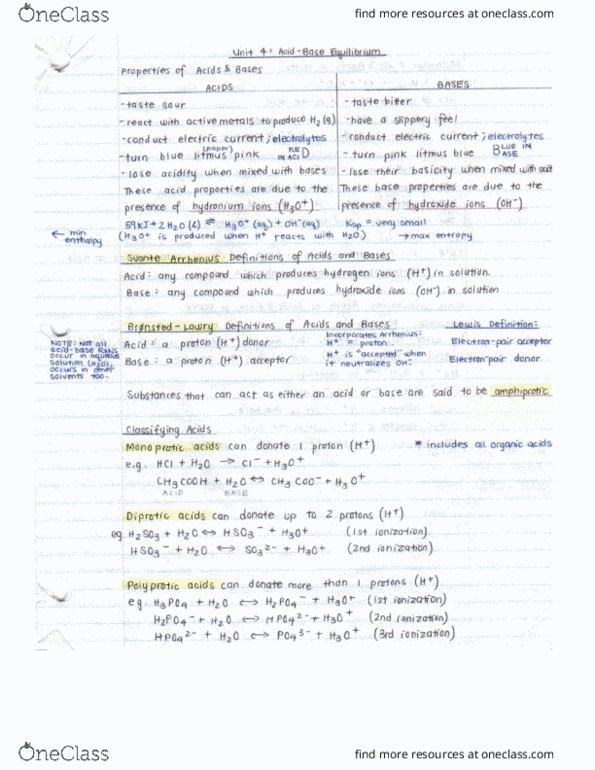 OneClass
find more resources at oneclass.com
Unit 4: Acid-Base Equilibrium
Properties of Acids & Bases
ACIDS
BASES
- taste sour
- taste bitter
- react with active metals to produce H₂(g)
- have a slippery feel
- conduct electric current; electrolytes
- conduct electric current; electrolytes
(paper)
- turn blue litmus pink
RED
IN ACID
- turn pink litmus blue
BLUE IN
BASE
- lose acidity when mixed with bases
- lose their basicity when mixed with acid
These acid properties are due to the
presence of hydronium ions (H₃O⁺)
These base properties are due to the
presence of hydroxide ions (OH⁻)
← min
enthalpy
59kJ + 2H₂O(l) ⇌ H₃O⁺(aq) + OH⁻(aq)
Ksp = very small
(H₃O⁺ is produced when H⁺ reacts with H₂O)
→ max entropy
Svante Arrhenius Definitions of Acids and Bases
Acid: any compound which produces hydrogen ions (H⁺) in solution.
Base: any compound which produces hydroxide ions (OH⁻) in solution
Brønsted-Lowry Definitions of Acids and Bases
Lewis Definition:
NOTE: Not all
acid-base RXNS
occur in aqueous
solution (H₂O);
occurs in other
solvents too.
Acid: a proton (H⁺) donor
Base: a proton (H⁺) acceptor
Incorporates Arrhenius:
H⁺ = proton
H⁺ is "accepted" when
it neutralizes OH⁻
Electron-pair acceptor
Electron-pair donor
Substances that can act as either an acid or base are said to be amphiprotic
Classifying Acids
Monoprotic acids can donate 1 proton (H⁺)
* includes all organic acids
e.g. HCl + H₂O → Cl⁻ + H₃O⁺
CH₃COOH + H₂O ↔ CH₃COO⁻ + H₃O⁺
ACID BASE
Diprotic acids can donate up to 2 protons (H⁺)
eg. H₂SO₃ + H₂O ↔ HSO₃⁻ + H₃O⁺ (1st ionization)
HSO₃⁻ + H₂O ↔ SO₃²⁻ + H₃O⁺ (2nd ionization)
Polyprotic acids can donate more than 1 protons (H⁺)
e.g. H₃PO₄ + H₂O ↔ H₂PO₄⁻ + H₃O⁺ (1st ionization)
H₂PO₄⁻ + H₂O ↔ HPO₄²⁻ + H₃O⁺ (2nd ionization)
HPO₄²⁻ + H₂O ↔ PO₄³⁻ + H₃O⁺ (3rd ionization)
OneClass
find more resources at oneclass.com